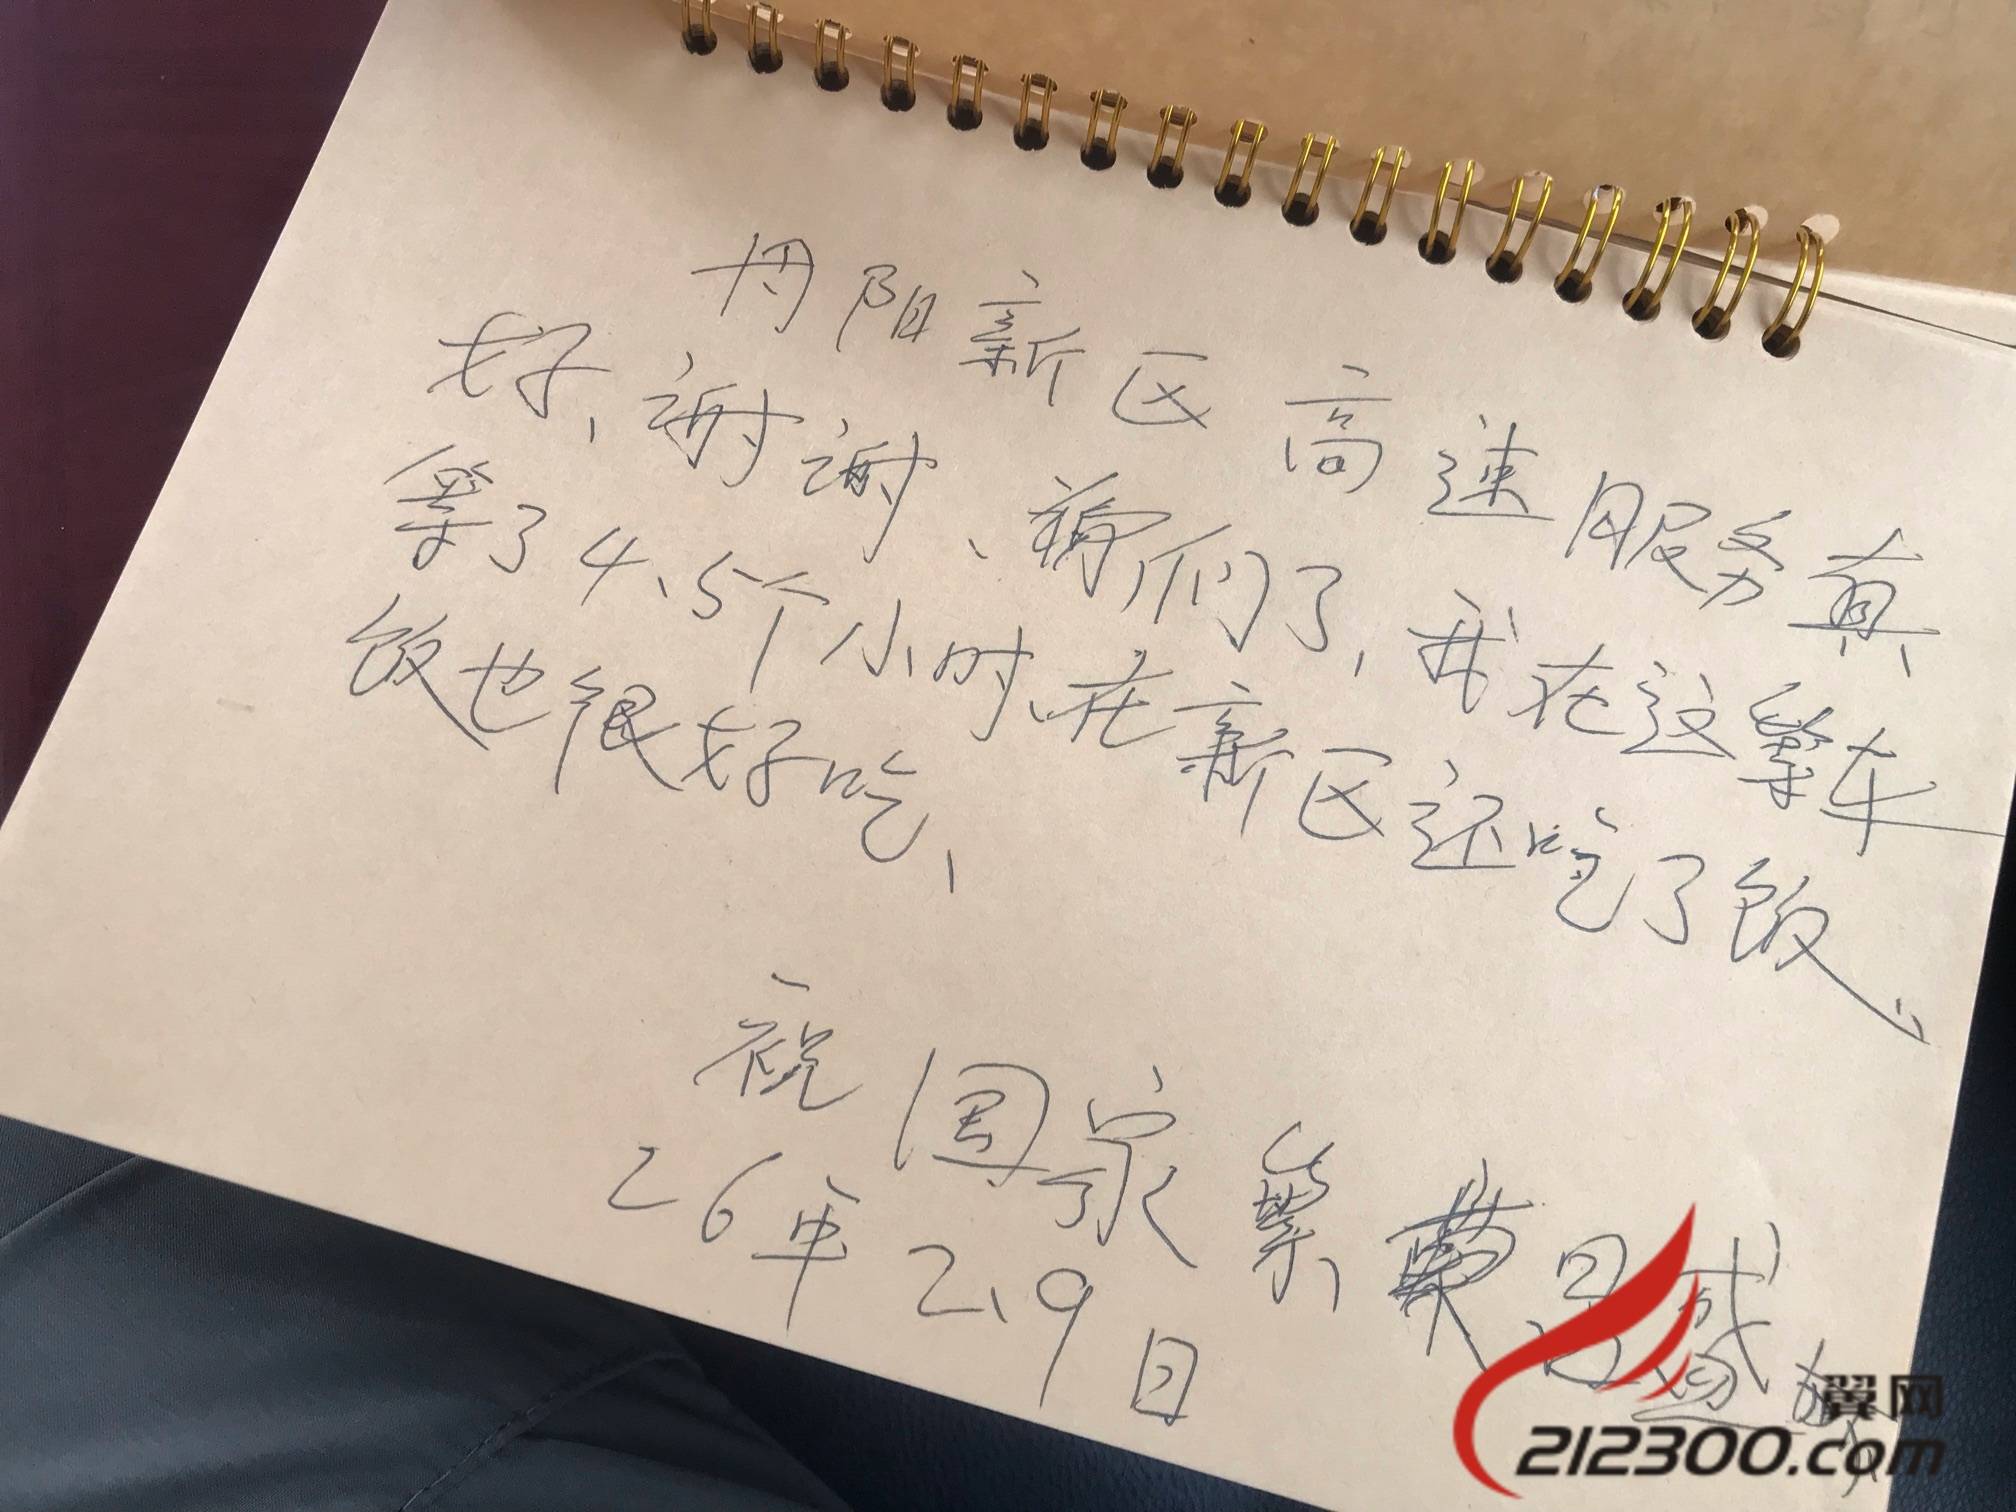 丹阳新区高速服务真
好、谢谢、你们了,我在这等车
等了4、5个小时、在新区还吃了饭、
饭也很好吃、
祝国家繁荣昌盛
26年2、9日
翼网
212300.com